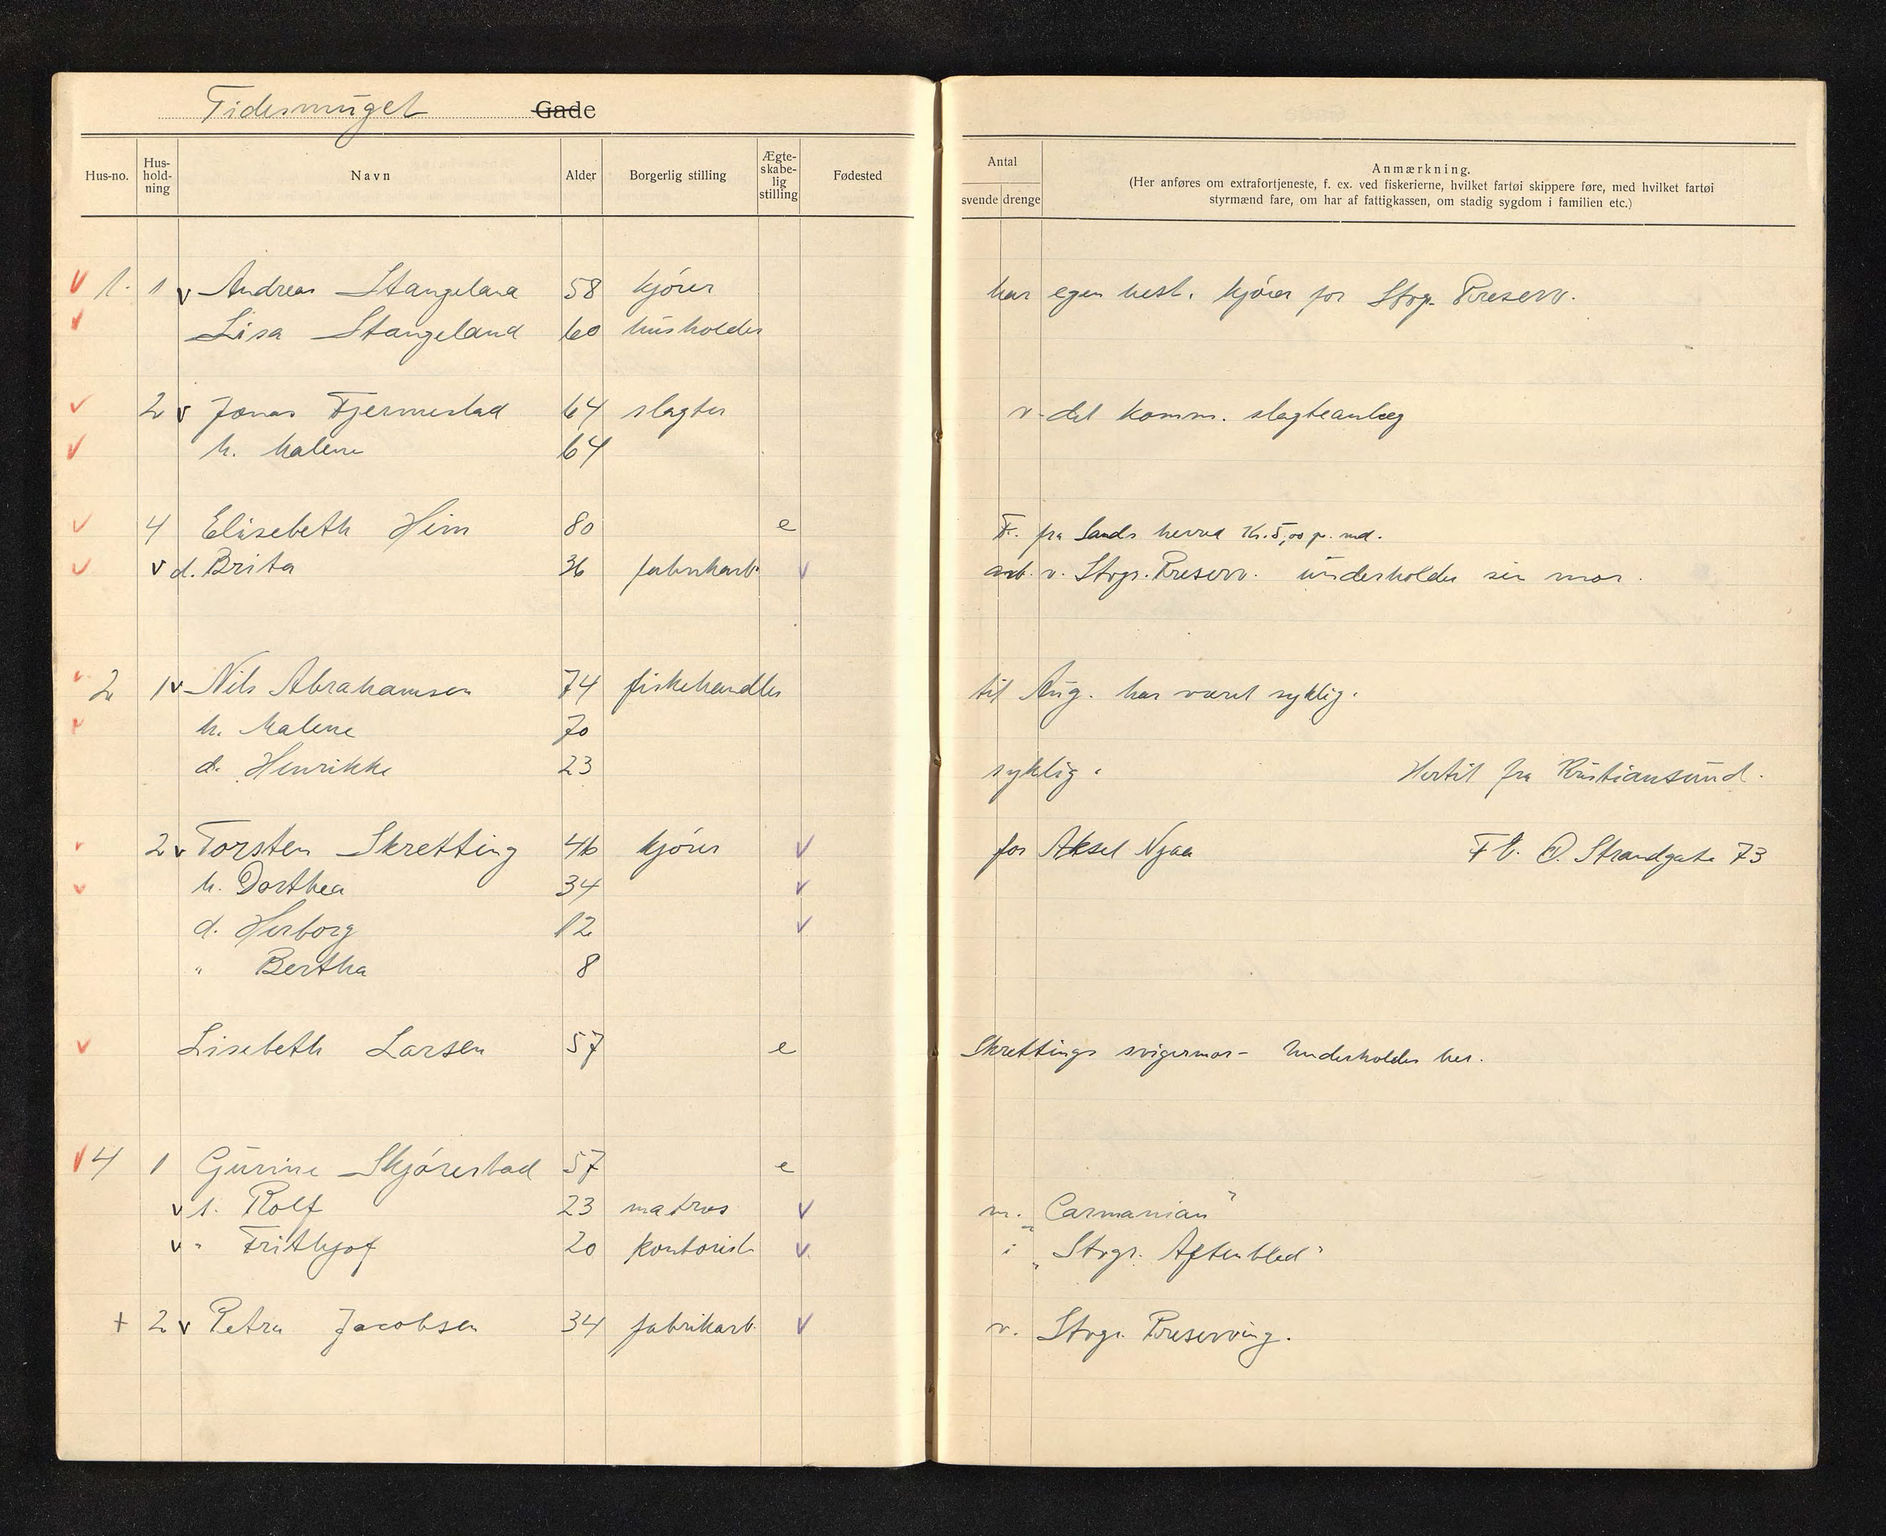 Tidesmuget Gade
Hus-no. Hus-hold-ning Navn Alder Borgerlig stilling Ægte-skabe-lig stilling Fødested
Antal
svende drenge
Anmærkning.
(Her anføres om extrafortjeneste, f. ex. ved fiskerierne, hvilket fartøi skippere føre, med hvilket fartøi
styrmænd fare, om har af fattigkassen, om stadig sygdom i familien etc.)
1. 1 v Andreas Stangeland 58 kjører har egen hest. kjører for Stvgr. Preserv.
Lisa Stangeland 60 husholder
2 v Jonas Fjermestad 64 slagter v. det komm. slagteanlæg
h. Malene 64
4 Elisebeth Heim 80 e F. fra Sands herred Kr. 5,00 pr. md.
v d. Brita 36 fabrikarb. v arb. v. Stvgr. Preserv. underholder sin mor.
2 1 v Nils Abrahamsen 74 fiskehandler til Aug. har været syklig.
h. Malene 70
d. Henrikke 23 syklig. Hertil fra Kristiansund.
2 v Torsten Skretting 46 kjører v for Aksel Njaa Ft. Ø. Strandgate 73
h. Dorthea 34 v
d. Herborg 12 v
" Bertha 8
Lisebeth Larsen 57 e Skrettings svigermor - Underholdes her.
4 1 Gurine Skjørestad 57 e
v s. Rolf 23 matros v m. "Carmanian"
v " Frithjof 20 kontorist v i "Stvgr. Aftenblad"
+ 2 v Petra Jacobsen 34 fabrikarb. v v. Stvgr. Preserving.